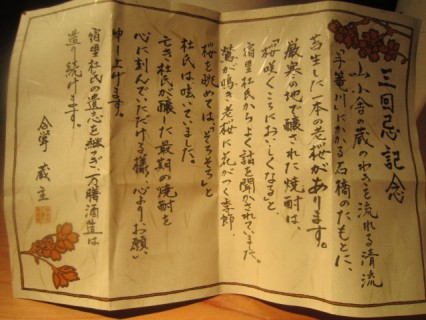 三回忌記念
山小舎の蔵のわきを流れる清流
「手篭川」にかかる石橋のたもとに、
苔生した一本の老桜があります。
厳寒の地で醸された焼酎は、
「桜咲くころにおいしくなる」と、
宿里杜氏からよく話を聞かされていました。
鶯が鳴き老桜に花がつく季節、
桜を眺めては、「そろそろ」と
杜氏は呟いていました。
亡き杜氏が醸した最期の焼酎を
心に刻んでいただける様、心よりお願い
申し上げます。
宿里杜氏の遺志を継ぎ万膳酒造は
造り続けます。
合掌 蔵主